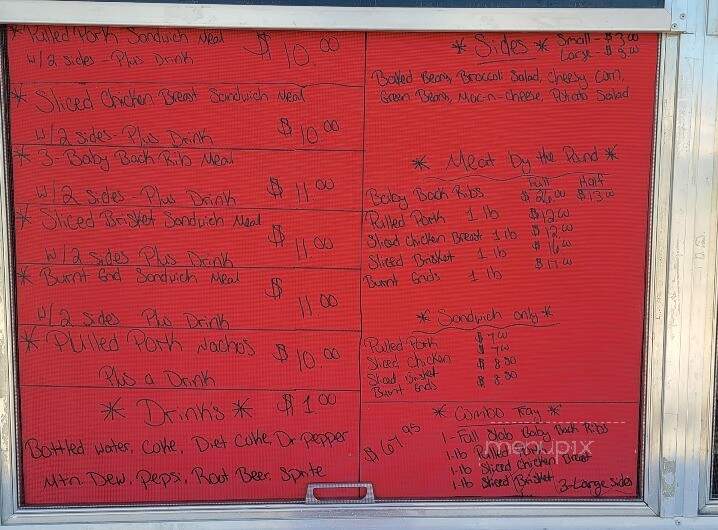 * Pulled Pork Sandwich Meal
w/2 sides - Plus Drink $10.00
* Sliced Chicken Breast Sandwich Meal
w/2 sides - Plus Drink $10.00
* 3-Baby Back Rib Meal
w/2 sides - Plus Drink $11.00
* Sliced Brisket Sandwich Meal
w/2 sides Plus Drink $11.00
* Burnt End Sandwich Meal
w/2 sides Plus Drink $11.00
* Pulled Pork Nachos $10.00
Plus a Drink
* Drinks * $1.00
Bottled water, Coke, Diet Coke, Dr pepper
Mtn. Dew, Pepsi, Root Beer, Sprite
* Sides * Small - $3.00
Large - $5.00
Baked Beans, Broccoli Salad, Cheesy Corn,
Green Beans, Mac-n-Cheese, Potato Salad
* Meat by the Pound *
Full Half
Baby Back Ribs $26.00 $13.00
Pulled Pork 1 lb $12.00
Sliced Chicken Breast 1 lb $12.00
Sliced Brisket 1 lb $16.00
Burnt Ends 1 lb $17.00
* Sandwich only *
Pulled Pork $7.00
Sliced Chicken $7.00
Sliced Brisket $8.50
Burnt Ends $8.50
* Combo Tray *
$67.95
1-Full Slab Baby Back Ribs
1-lb Pulled Pork
1-lb Sliced Chicken Breast
1-lb Sliced Brisket 3-Large Sides
menupix